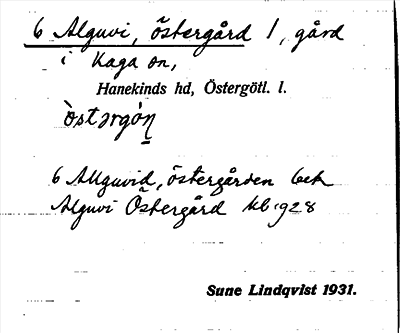 6 Alguvi, östergård 1, gård
i Kaga sn,
Hanekinds hd, Östergötl. l.
òstərgó̜n̠
6 Allguvid, östergården bet
Alguvi Östergård kb 1928
Sune Lindqvist 1931.